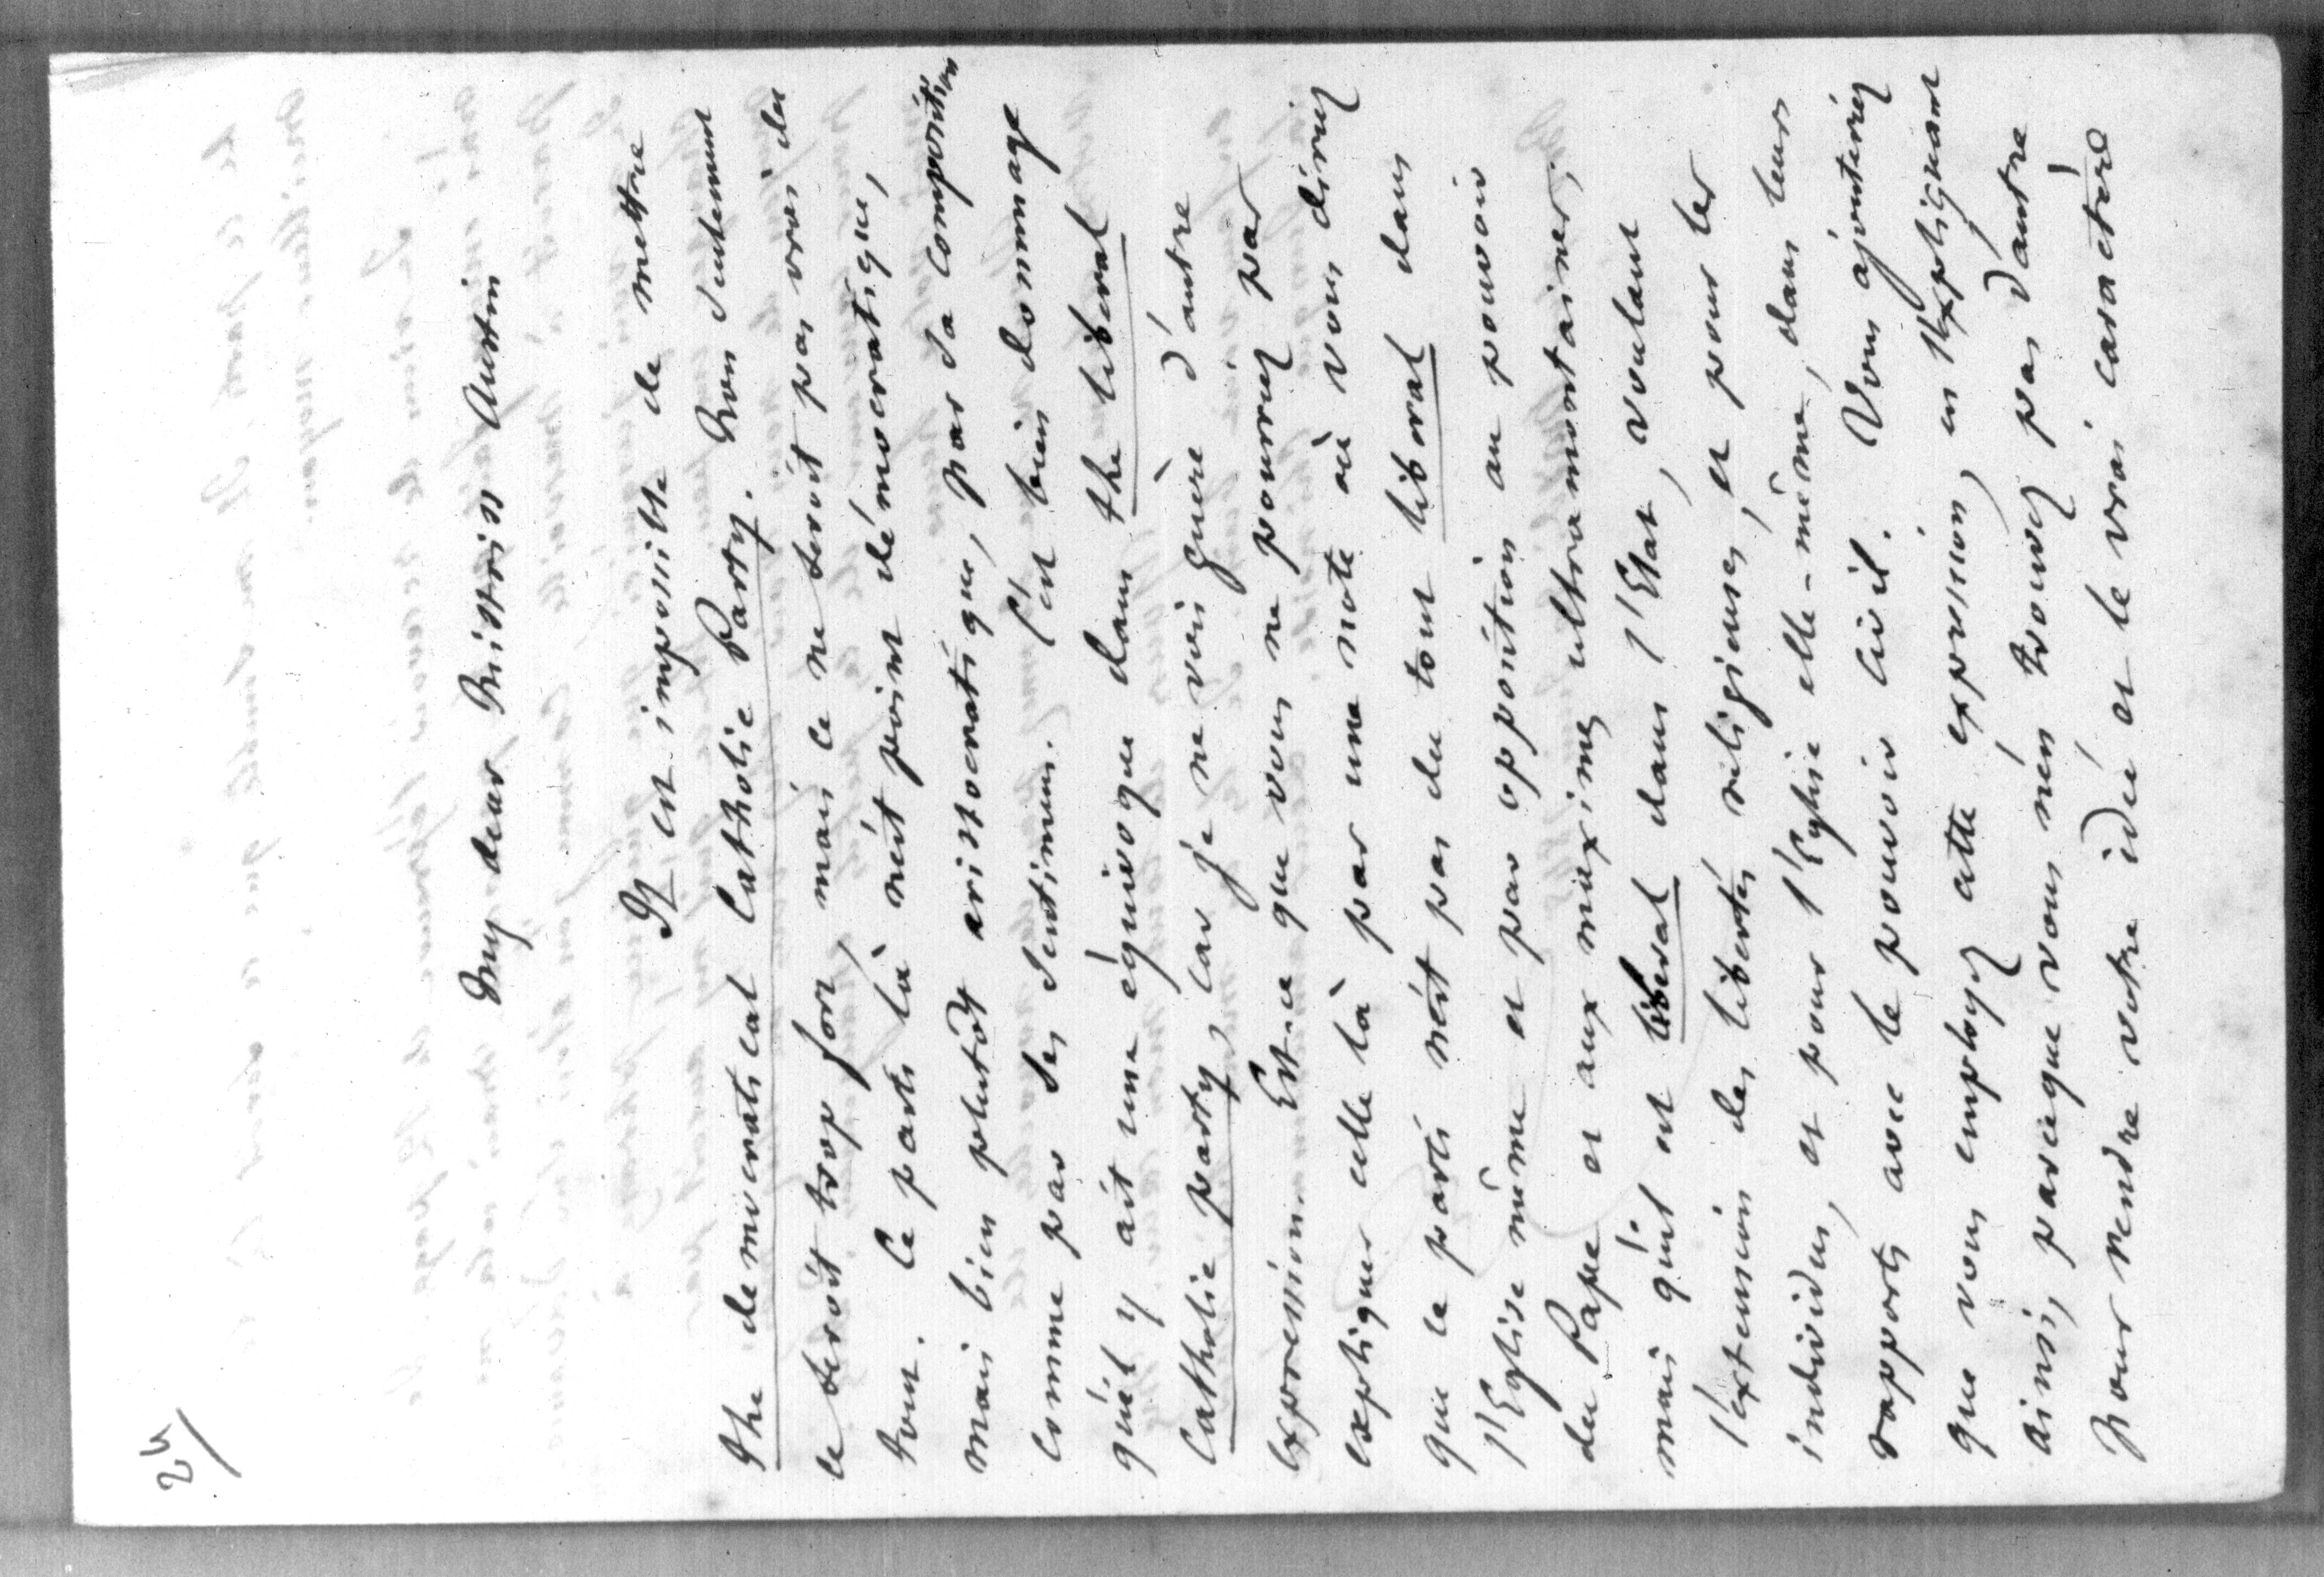 24/
My dear Mistriss Austin
Il est impossible de mettre
the democratical Catholic Party. Non seulement
ce seroit trop fort, mais ce ne seroit pas vrai du
tout. Ce parti là n'est point démocratique,
mais bien plutôt aristocratique, par sa composition
comme par ses sentimens. C'est bien dommage
qu'il y ait une équivoque dans the liberal
Catholic party, car je ne vois guère d'autre
expression. Est-ce que vous ne pourriez pas
expliquer celle là par une note où vous diriez
que ce parti n'est pas du tout liberal dans
l'Eglise même et par opposition au pouvoir
du Pape et aux maximes ultramontaines,
mais qu'il est liberal dans l'Etat, voulant
l'extension des libertés religieuses, et pour les
individus, et pour l'Eglise elle-même, dans leurs
rapports avec le pouvoir civil. Vous ajouteriez
que vous employez cette expression, en l'expliquant
ainsi, parceque vous n'en trouvez pas d'autre
pour rendre votre idée et le vrai caractère